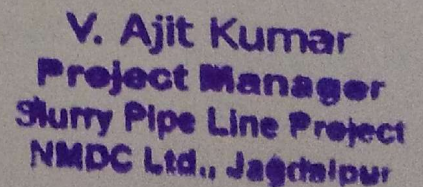 V. Ajit Kumar
Project Manager
Slurry Pipe Line Project
NMDC Ltd., Jagdalpur